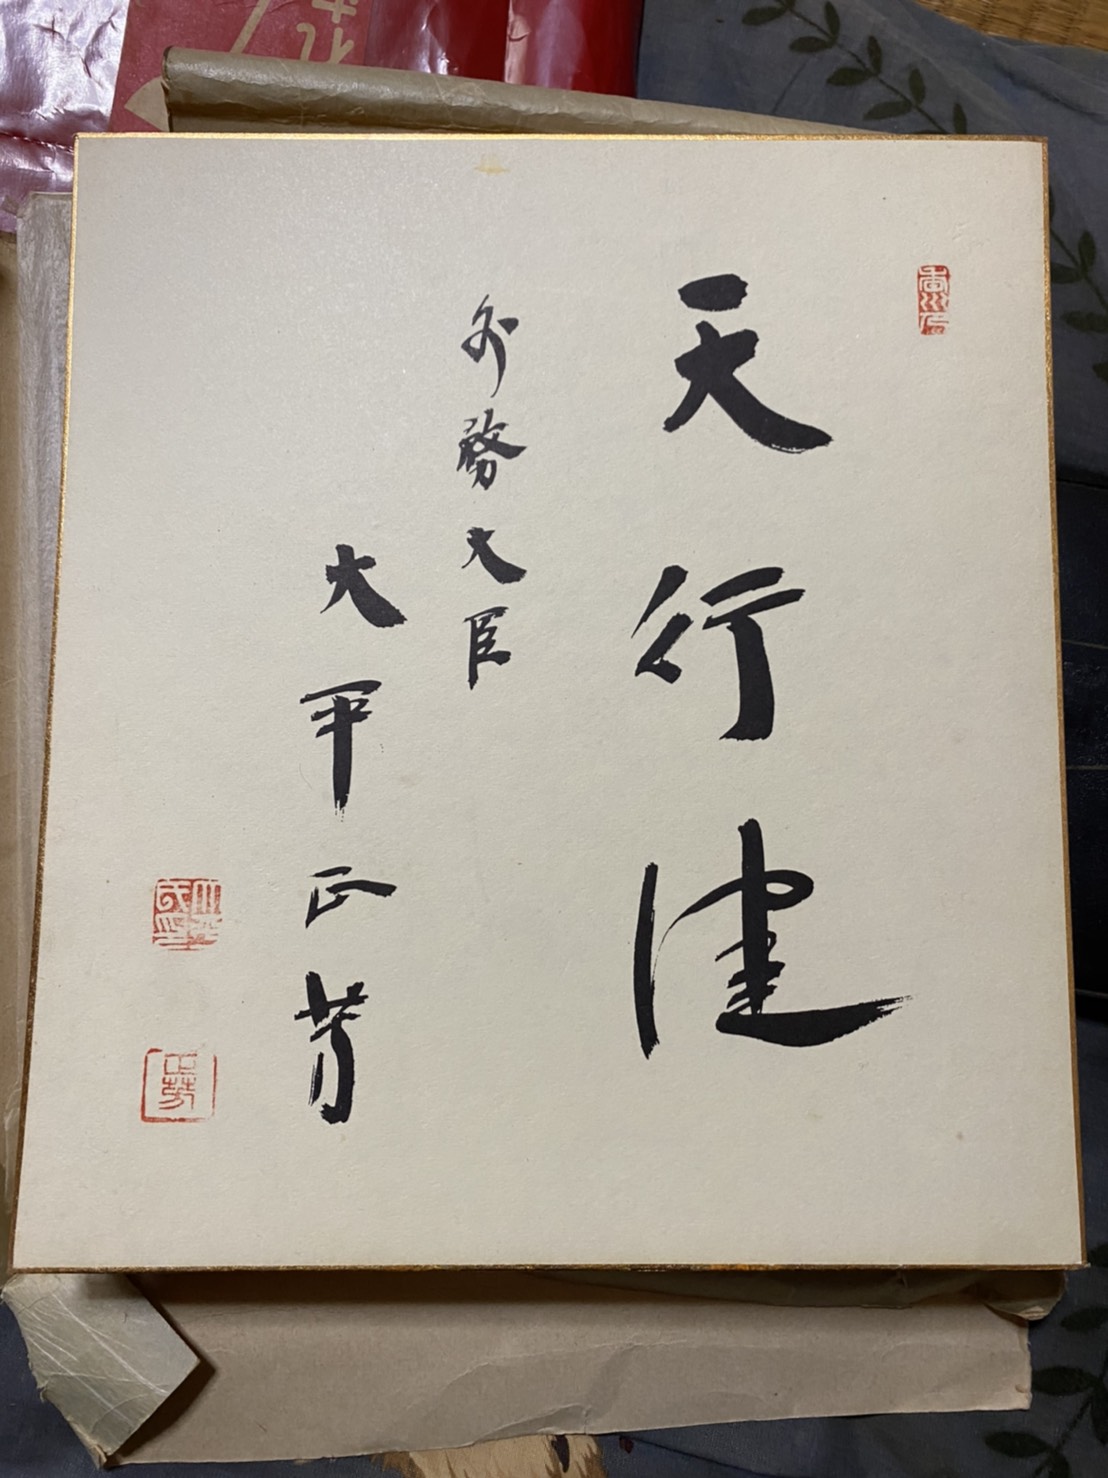 天行健
外務大臣
大平正芳
正芳